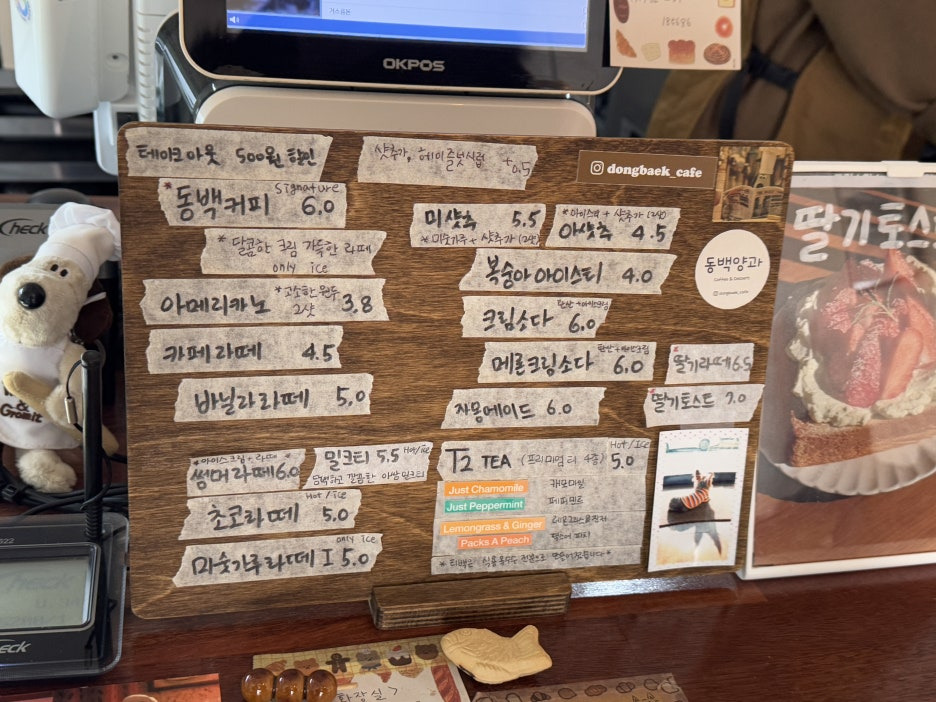 OKPOS
184686
테이크아웃 500원 할인
샷추가, 헤이즐넛시럽 +0.5
dongbaek_cafe
*동백커피 Signature 6.0
* 달콤한 크림 가득한 라떼
only ice
아메리카노 *고소한 원두 2샷 3.8
카페라떼 4.5
바닐라라떼 5.0
*아이스크림+라떼*
썸머라떼 6.0
밀크티 5.5 Hot/ice
담백하고 깔끔한 아쌈 밀크티
Hot/ice
초코라떼 5.0
only ice
미숫가루라떼 I 5.0
미샷추 5.5
*미숫가루+샷추가(2샷)
*아이스티+샷추가(2샷)
아샷추 4.5
복숭아아이스티 4.0
탄산+아이스크림
크림소다 6.0
탄산+아이스크림
메론크림소다 6.0
딸기라떼 6.5
자몽에이드 6.0
딸기토스트 7.0
Hot/Ice
T2 TEA (프리미엄티 4종) 5.0
Just Chamomile 캐모마일
Just Peppermint 페퍼민트
Lemongrass & Ginger 레몬그라스앤진저
Packs A Peach 팩스어피치
* 티백은 식용옥수수 전분으로 만들어졌습니다 *
동백양과
Coffee & Dessert
dongbaek_cafe
딸기토스
Check
& Gromit
화장실>